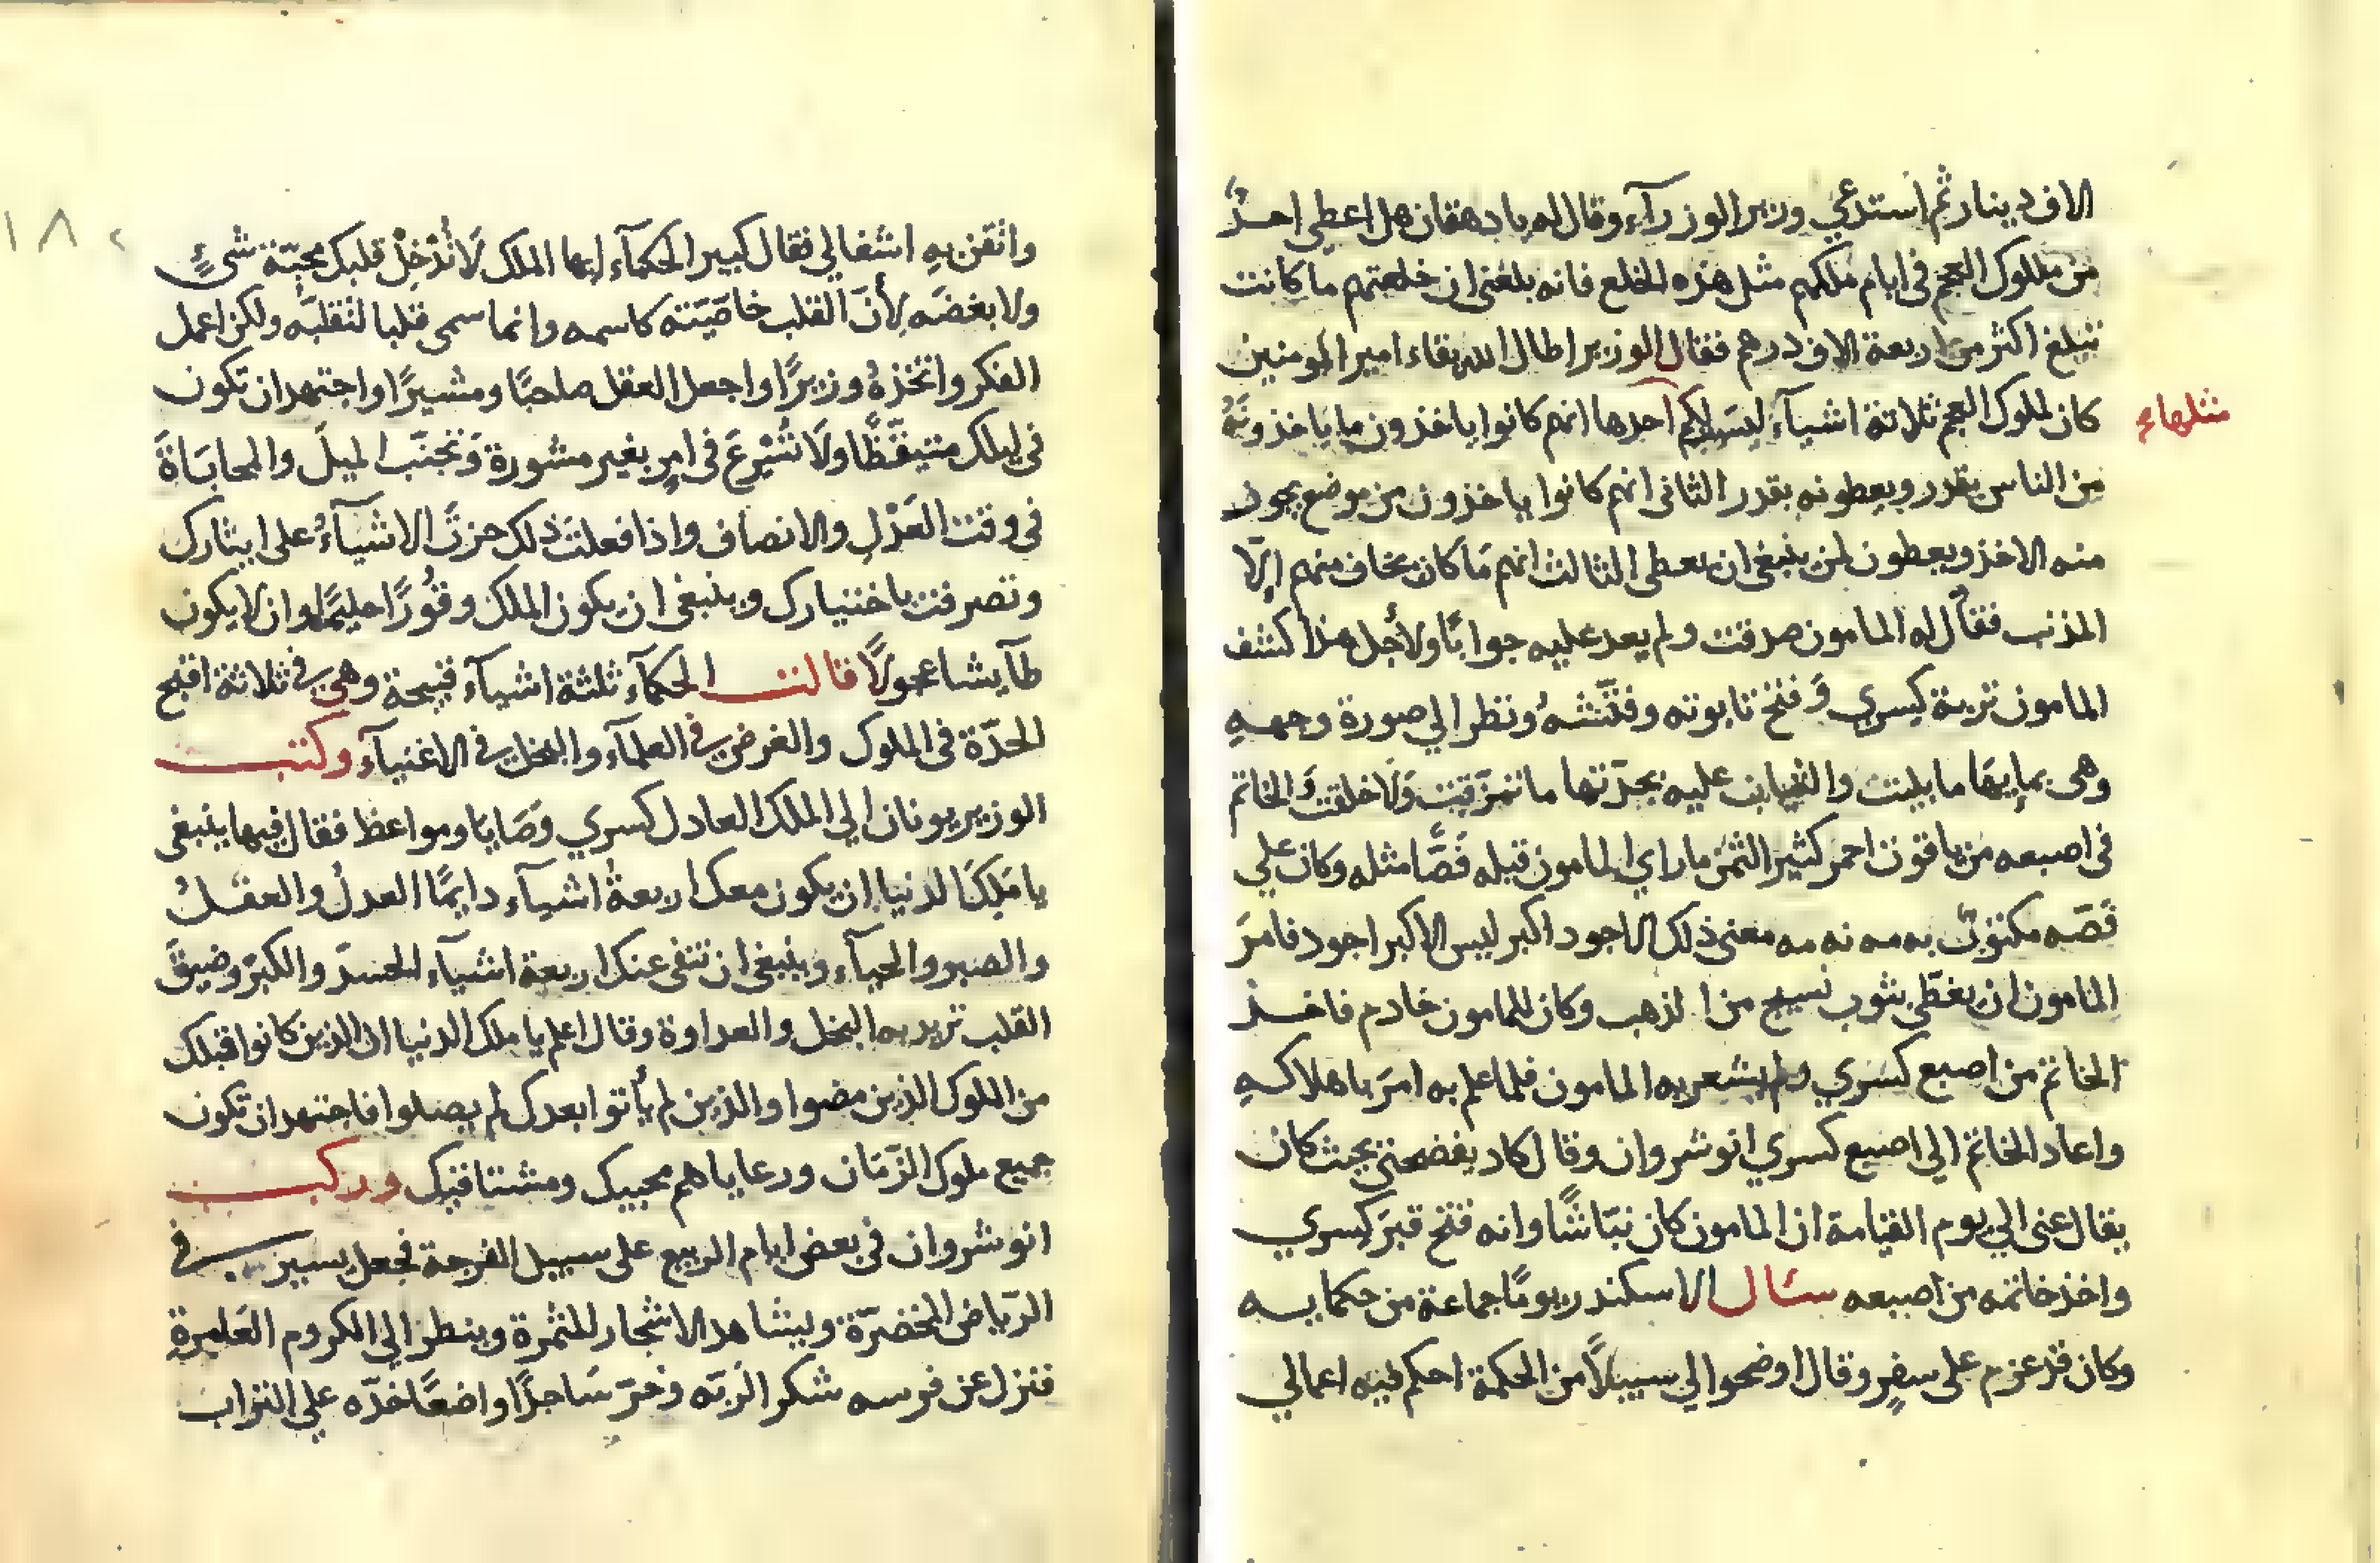 الاف دينار ثم استدعي وزير الوزرآء وقال له يا دهقان هل اعطي احدٌ
من ملوك العجم في ايام ملكهم مثل هذه الخلع فانه بلغني ان خلعتهم ما كانت
تبلغ اكثر من اربعة الاف درهم فقال الوزير اطال الله بقاء امير المومنين
كان لملوك العجم ثلاثة اشيآء ليس لكم احدها انهم كانوا ياخذون ما ياخذونَهُ
مثلها
من الناس بقدر ويعطونه بقدر الثاني انهم كانوا ياخذون من موضع يجوز
منه الاخذ ويعطون لمن ينبغي ان يعطي الثالث انهم مَا كان يخاف منهم اِلّا
المذنب فقال له المامون صدقت ولم يعد عليه جوابًا ولأجل هذا كشف
المامون تربة كيسري وَ فتح تابوته وفتّشهُ ونظر الي صورة وجههِ
وهي بمايهَا ما بليت والثياب عليه بجدّتها ما تمزّقت وَلَا خلقت وَ الخاتم
في اصبعه من ياقوت احمر كثير الثمن ما راي المامون قبله فَصًّا مثله وكان علي
فَصّه مكتوبٌ به مه نه مه معني ذلك الاجود اكبر ليس الاكبر اجود فامرَ
المامون ان يغطّي بثوب نسيج من الذهب وكان للمامون خادم فاخذ
الخاتم من اصبع كسري ولم يشعر به المامون فلما علم به امرَ باهلاكهِ
واعاد الخاتم الي اصبع كسري انوشروان وقال كاد يفضحني بحيث كان
يقال عني الي يوم القيامة ان المامون كان نبّاشًا وانه فتح قبرَ كسري
واخذ خاتمه من اصبعه سئال الاسكندر يومًا جماعة من حكمايه
وكان قد عزم على سفرٍ وقال اوضحوا لي سبيلًا من الحكمة احكم فيه اعمالي
واتقن بهِ اشغالي فقال كبير الحكمآء ايها الملك لَا تُدْخِلْ قلبك محبّة شيءٍ
ولا بغضَه لِأنَّ القلب خاصّيَته كاسمه وانما سمي قلبا لتقلبَه ولكن اعمل
الفكر واتخذهُ وزيرًا واجعل العقل صاحبًا ومشيرًا واجتهد ان تكون
في ليلك متيقّظًا ولَا تشْرعَ في امرٍ بغير مشورة وَتجنّب الميلَ والمحابَاةَ
في وقت العَدْلِ والانصاف واذا فعلتَ ذلك جرَتْ الاشيآءُ على ايثارك
وتصرفت باختيارك وينبغي ان يكون الملك وقُورًا حليمًا وان لا يكون
طآيشا عجولًا قالت الحكمآء ثلثة اشيآء قبيحة وهي في ثلاثة اقبح
الحدّة في الملوك والغرض في العلمآء والبخل في الاغنيآء وكتب
الوزير يونان الي الملك العادل كسري وصَايا ومواعظ فقال فيها ينبغي
يا مَلِكَ الدنيا ان يكون معك اربعةُ اشيآء دايمًا العدلُ والعقلُ
والصبر والحيآء وينبغي ان تنفي عنك اربعة اشيآء الحسدَ والكبرَ وضيقَ
القلب تريد به البخل والعداوة وقال اعلم يا ملك الدنيا ان الذين كانوا قبلك
من الملوك الذين مضوا والذين لم يأتوا بعدك لم يصلوا فاجتهد ان تكون
جميع ملوك الزّمَان ورعاياهم محبيك ومشتاقيك وركب
انوشروان في بعض ايام الربيع على سبيل الفرجة فجعل يسير في
الريَاض المخضرّة ويشاهد الاشجار المثمرة وينظر الي الكروم العَامِرةِ
فنزل عن فرسه شكر الربّه وخرّ سَاجدًا واضعًا خدّه علي التراب
١٨٠